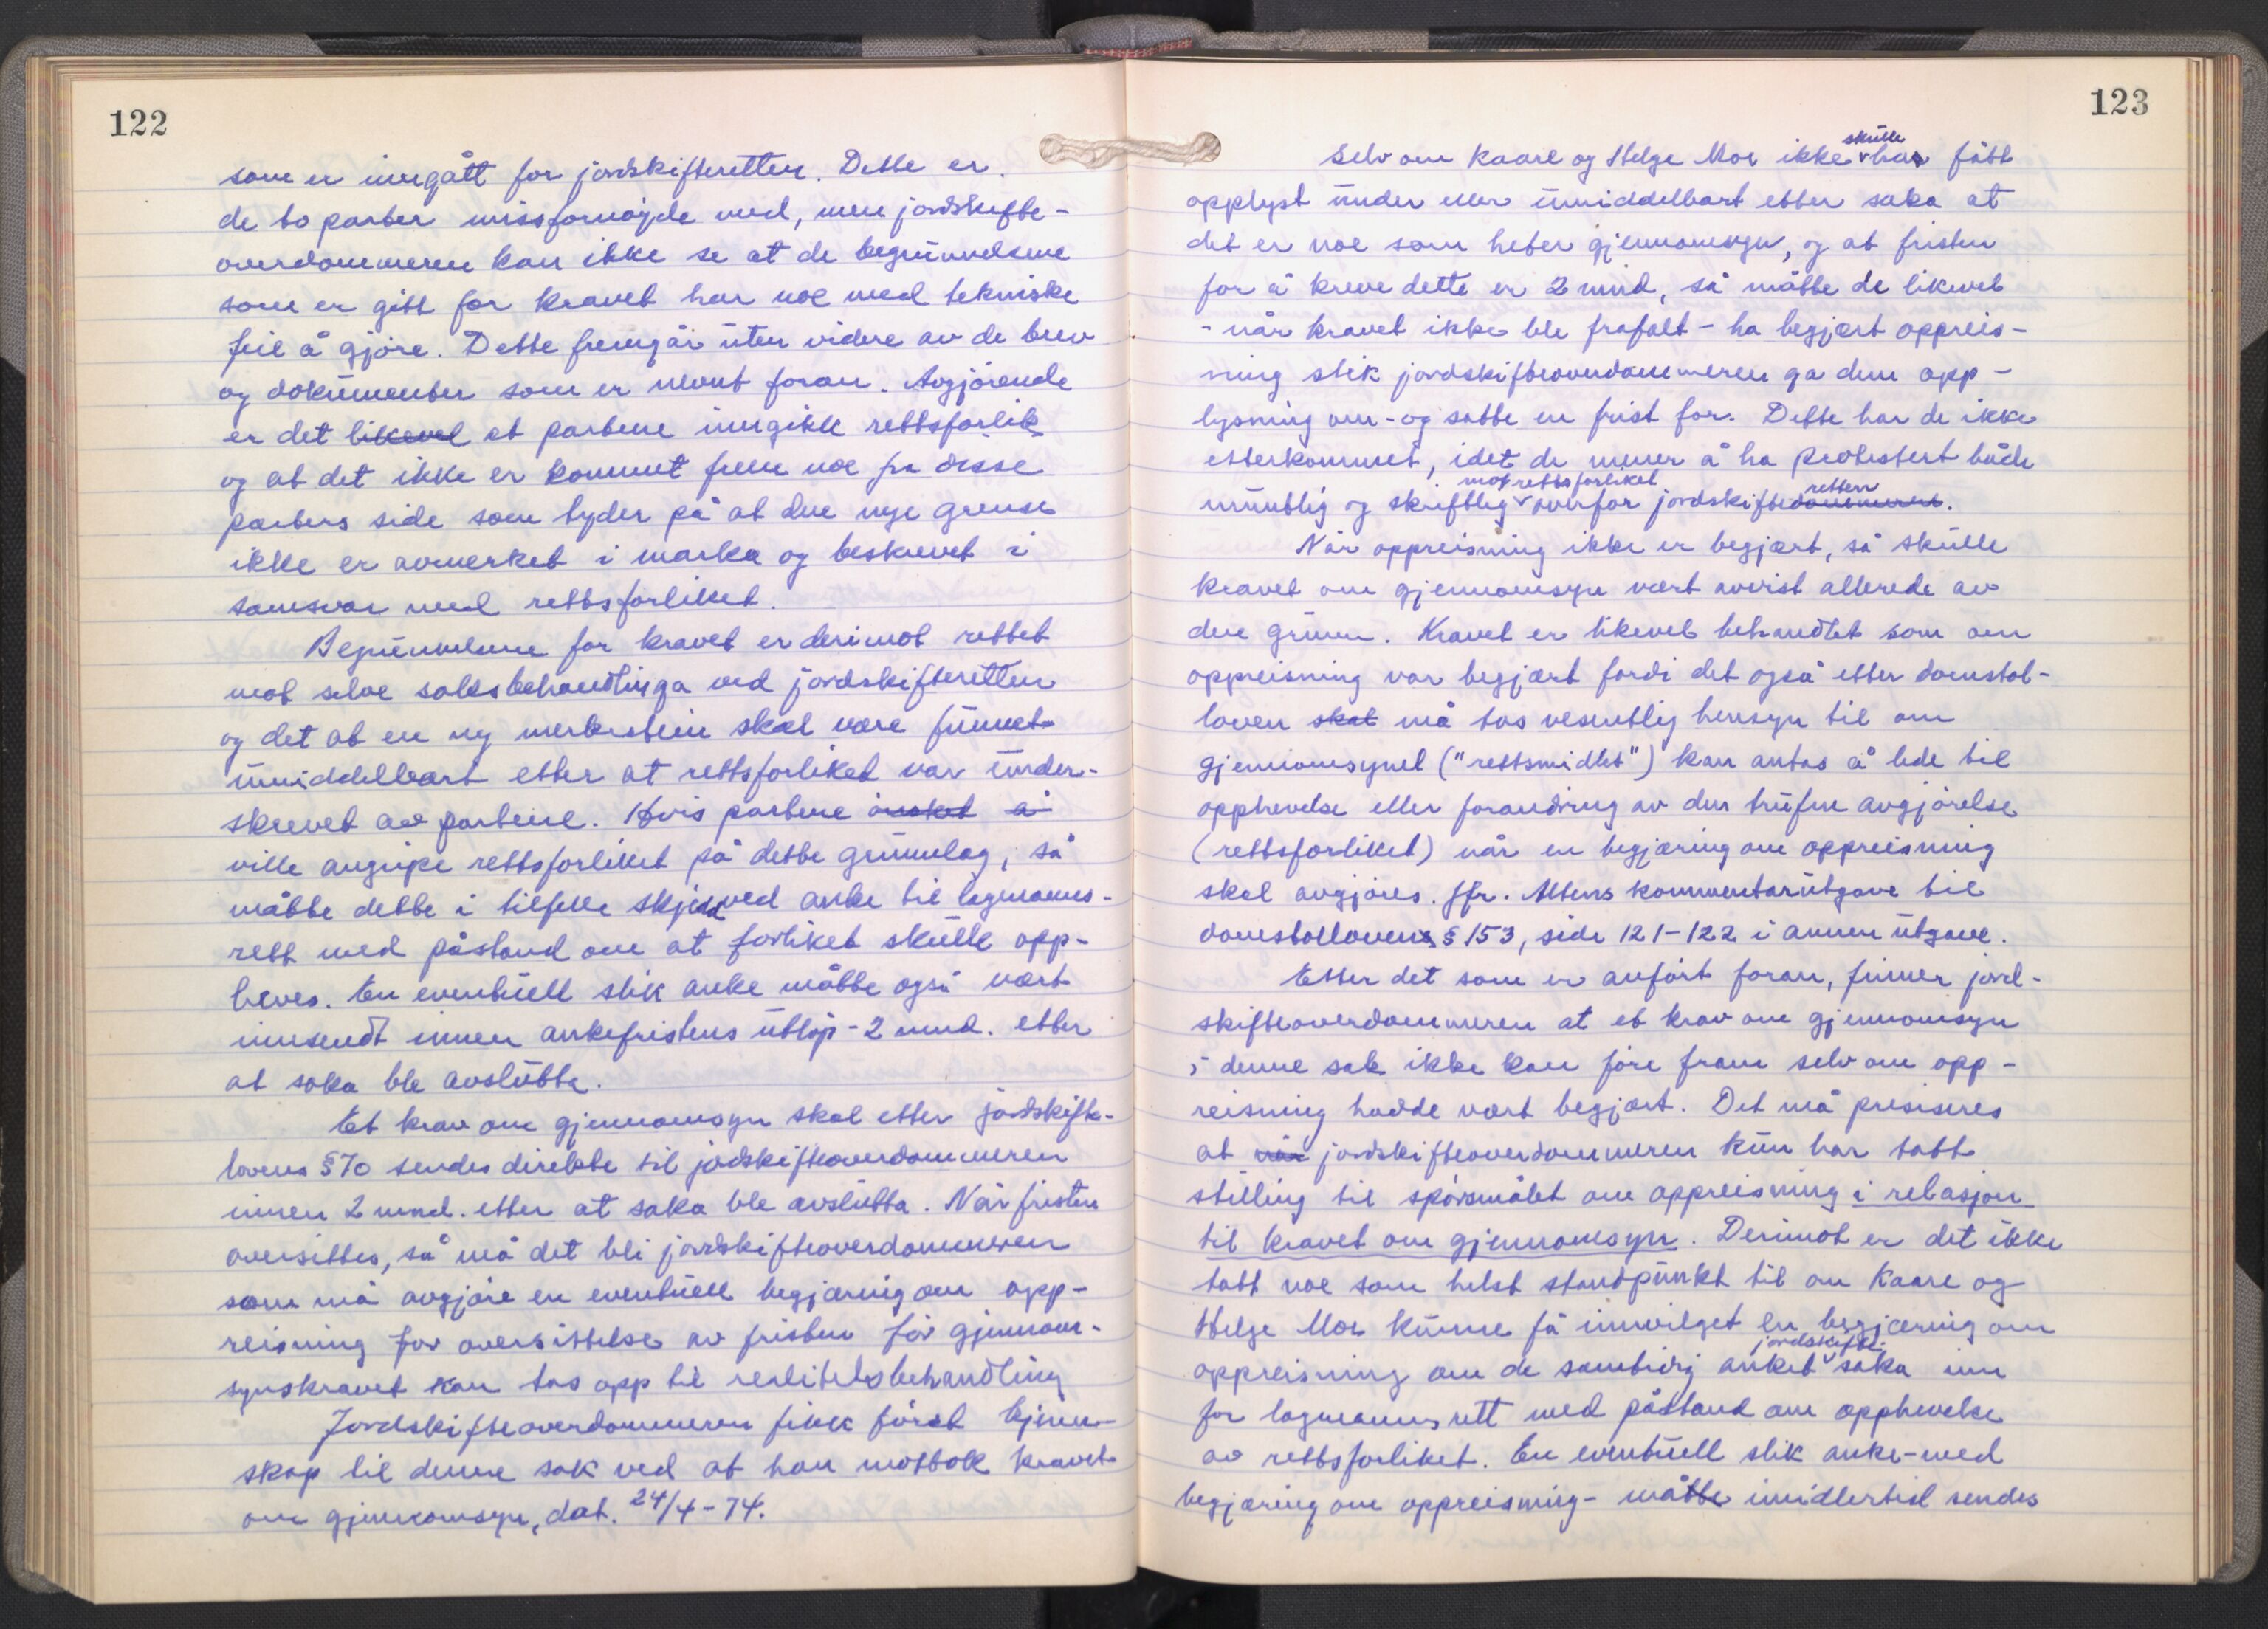 122
som er inngått for jordskifteretten. Dette er
de to parter missfornøyde med, men jordskifte-
overdommeren kan ikke se at de begrunnelsene
som er gitt for kravet har noe med tekniske
feil å gjøre. Dette fremgår uten videre av de brev
og dokumenter som er nevnt foran. Avgjørende
er det likevel at partene inngikk rettsforlik
og at det ikke er kommet frem noe fra disse
parters side som tyder på at den nye grense
ikke er avmerket i marka og beskrevet i
samsvar med rettsforliket.
Begrunnelsene for kravet er derimot rettet
mot selve saksbehandlinga ved jordskifteretten
og det at en ny merkestein skal være funnet
umiddelbart etter at rettsforliket var under-
skrevet av partene. Hvis partene ønsket å
ville angripe rettsforliket på dette grunnlag, så
måtte dette i tilfelle skjedd ved anke til lagmanns-
rett med påstand om at forliket skulle opp-
heves. En eventuell slik anke måtte også vært
innsendt innen ankefristens utløp - 2 mnd. etter
at saka ble avslutta.
Et krav om gjennomsyn skal etter jordskifte-
lovens § 70 sendes direkte til jordskifteoverdommeren
innen 2 mnd. etter at saka ble avslutta. Når fristen
oversittes, så må det bli jordskifteoverdommeren
som må avgjøre en eventuell begjæring om opp-
reisning for oversittelse av fristen før gjennom-
synskravet kan tas opp til realitetsbehandling
Jordskifteoverdommeren fikk først kjenn-
skap til denne sak ved at han mottok kravet
om gjennomsyn, dat. 24/4-74.
123
skulle
Selv om Kaare og Helge Moe ikke har fått
opplyst under eller umiddelbart etter saka at
det er noe som heter gjennomsyn, og at fristen
for å kreve dette er 2 mnd, så måtte de likevel
- når kravet ikke ble frafalt - ha begjært oppreis-
ning slik jordskifteoverdommeren ga dem opp-
lysning om - og satte en frist for. Dette har de ikke
etterkommet, idet de mener å ha protestert både
mot rettsforliket retten
muntlig og skriftlig overfor jordskiftedommeren.
Når oppreisning ikke er begjært, så skulle
kravet om gjennomsyn vært avvist allerede av
den grunn. Kravet er likevel behandlet som om
oppreisning var begjært fordi det også etter domstol-
loven skal må tas vesentlig hensyn til om
gjennomsynet ("rettsmidlet") kan antas å lede til
opphevelse eller forandring av den trufne avgjørelse
(rettsforliket) når en begjæring om oppreisning
skal avgjøres. Jfr. Altens kommentarutgave til
domstolloven § 153, side 121-122 i annen utgave.
Etter det som er anført foran, finner jord-
skifteoverdommeren at et krav om gjennomsyn
i denne sak ikke kan føre fram selv om opp-
reisning hadde vært begjært. Det må presiseres
at når jordskifteoverdommeren kun har tatt
stilling til spørsmålet om oppreisning i relasjon
til kravet om gjennomsyn. Derimot er det ikke
tatt noe som helst standpunkt til om Kaare og
Helge Moe kunne få innvilget en begjæring om
jordskifte
oppreisning om de samtidig anket saka inn
for lagmannsrett med påstand om opphevelse
av rettsforliket. En eventuell slik anke-med
begjæring om oppreisning - måtte imidlertid sendes